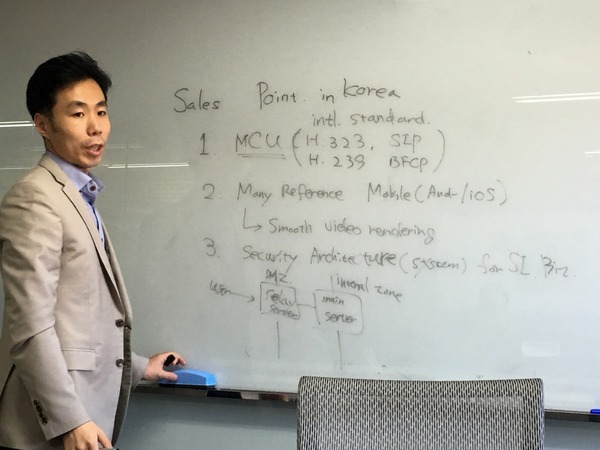 Sales Point in Korea
intl. standard.
1. MCU ( H.323, SIP
H. 239 BFCP )
2. Many Reference Mobile (And-/iOS)
↳ Smooth video rendering
3. Security Architecture (system) for SI Biz.
MZ. internal zone
user → relay server main server